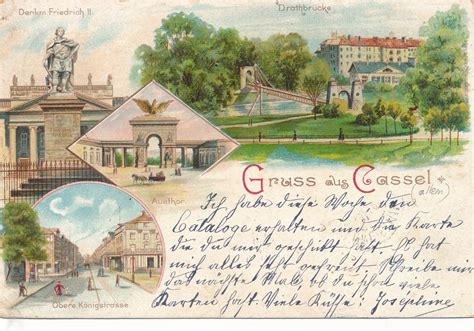 Denkm. Friedrich II.
Drahtbrücke
Auethor.
Obere Königstrasse
Gruss aus Cassel
(allem)
Ich habe diese Woche den
Cataloge erhalten und die Karte
die du mir geschikt hast. Es hat
mich alles sehr gefreut Schreibe mir
das nachste Mal, ob du schon viele
Karten hast. Viele Küsse! Josephine